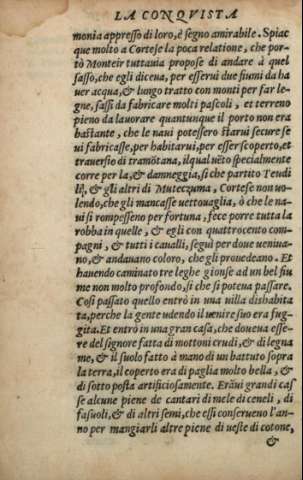 LA CONQVISTA
monia appresso di loro, è segno amirabile. Spiac
que molto a Cortese la poca relatione, che por-
tò Monteir tuttauia propose di andare à quel
sasso, che egli diceua, per esserui due fiumi da ha
uer acqua, & lungo tratto con monti per far le-
gne, sassi da fabricare molti pascoli, et terreno
pieno da lauorare quantunque il porto non era
bastante, che le naui potessero starui secure se
ui fabricasse, per habitarui, per esser scoperto, et
trauersio di tramōtana, il qual uēto specialmente
corre per la, & damneggia, si che partito Teudi
lē, & gli altri di Muteczuma, Cortese non uo-
lendo, che gli mancasse uettouaglia, ò che le na-
ui si rompesseno per fortuna, fece porre tutta la
robba in quelle, & egli con quattrocento com-
pagni, & tutti i caualli, seguì per doue ueniua-
no, & andauano coloro, che gli prouedeano. Et
hauendo caminato tre leghe gionse ad un bel fiu
me non molto profondo, si che si poteua passare.
Cosi passato quello entrò in una uilla dishabita
ta, perche la gente udendo il uenire suo era fug-
gita. Et entrò in una gran casa, che doueua esse-
re del signore fatta di mottoni crudi, & di legna
me, & il suolo fatto à mano di un battuto sopra
la terra, il coperto era di paglia molto bella, &
di sotto posta artificiosamente. Erāui grandi cas
se alcune piene de cantari di mele di ceneli, di
fasuoli, & di altri semi, che essi conserueno l'an-
no per mangiarli altre piene di ueste di cotone,
&